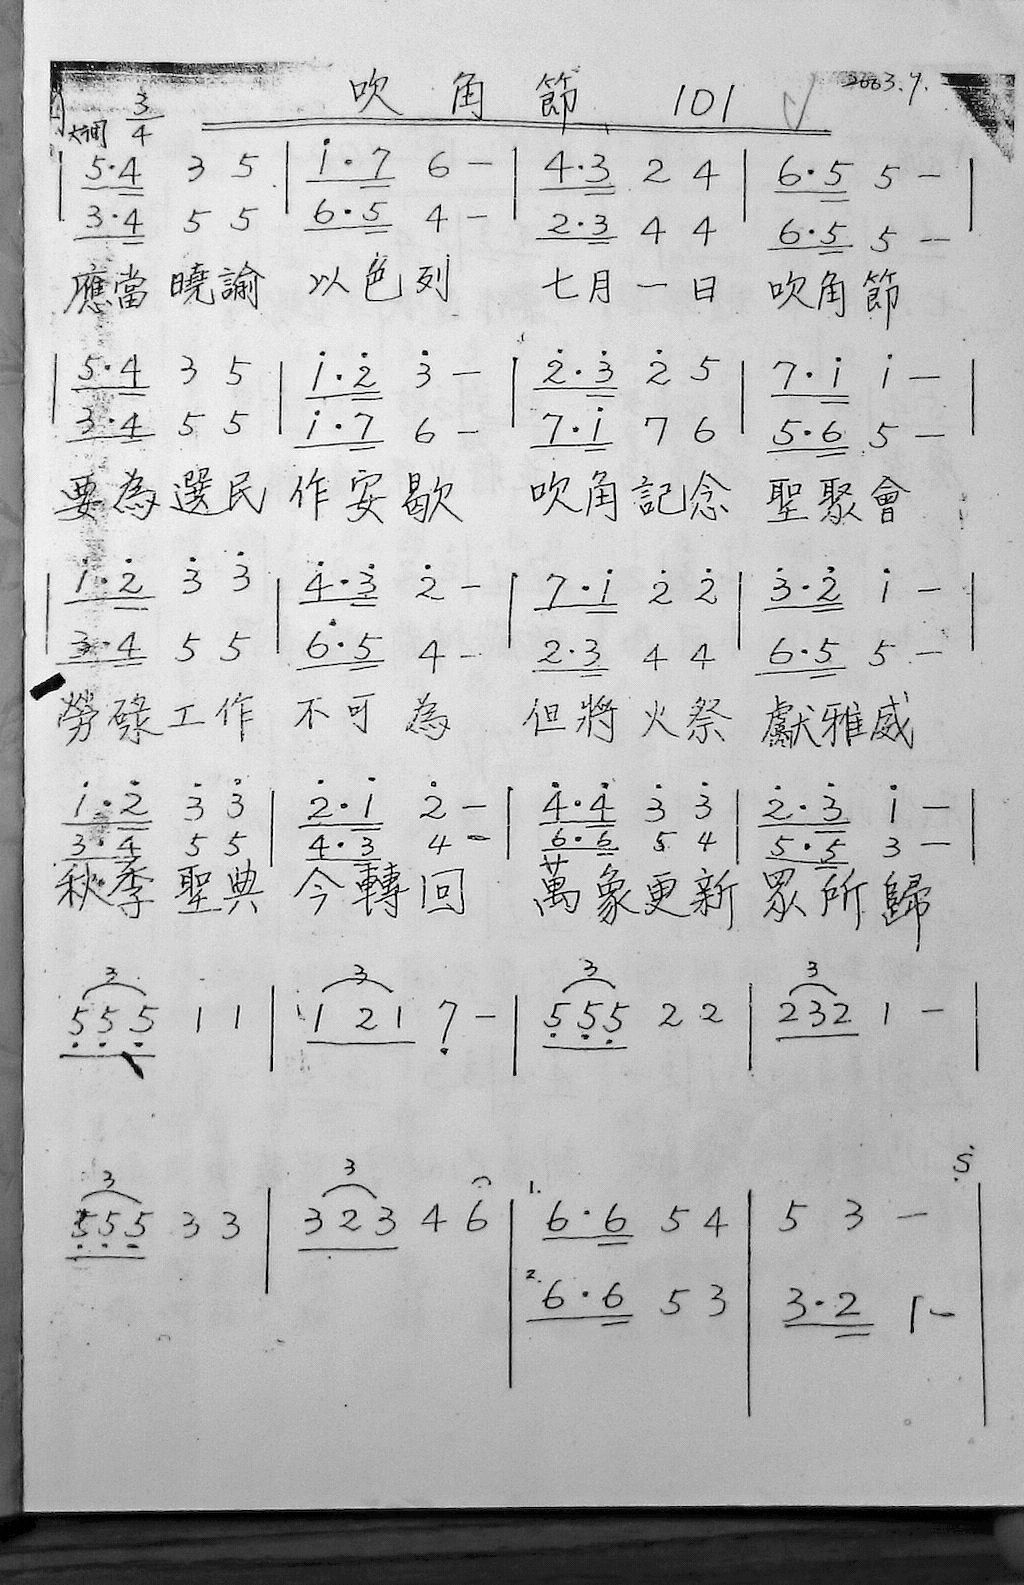 吹角節 101 2003.9.
3/4
| 5·4 3 5 | i·7 6 – | 4·3 2 4 | 6·5 5 – |
3·4 5 5 6·5 4 – 2·3 4 4 6·5 5 –
應當曉諭 以色列 七月一日 吹角節
| 5·4 3 5 | i·2̇ 3̇ – | 2̇·3̇ 2̇ 5 | 7·i i – |
3·4 5 5 i·7 6 – 7·i 7 6 5·6 5 –
要為選民 作安歇 吹角記念 聖聚會
| i·2̇ 3̇ 3̇ | 4̇·3̇ 2̇ – | 7·i 2̇ 2̇ | 3̇·2̇ i – |
3·4 5 5 6·5 4 – 2·3 4 4 6·5 5 –
勞碌工作 不可為 但將火祭 獻雅威
| i·2̇ 3̇ 3̇ | 2̇·i 2̇ – | 4̇·4̇ 3̇ 3̇ | 2̇·3̇ i – |
3·4 5 5 4·3 4 – 6·6 5 4 5·5 3 –
秋季聖典 今轉回 萬象更新 眾所歸
3 3 3 3
5̣5̣5̣ 1 1 | 1 2 1 7̣ – | 5̣5̣5̣ 2 2 | 232 1 – |
3 3 Ṣ
5̣5̣5̣ 3 3 | 3 2 3 4 6 | 1. 6·6 5 4 | 5 3 – |
2. 6·6 5 3 3·2 1 –